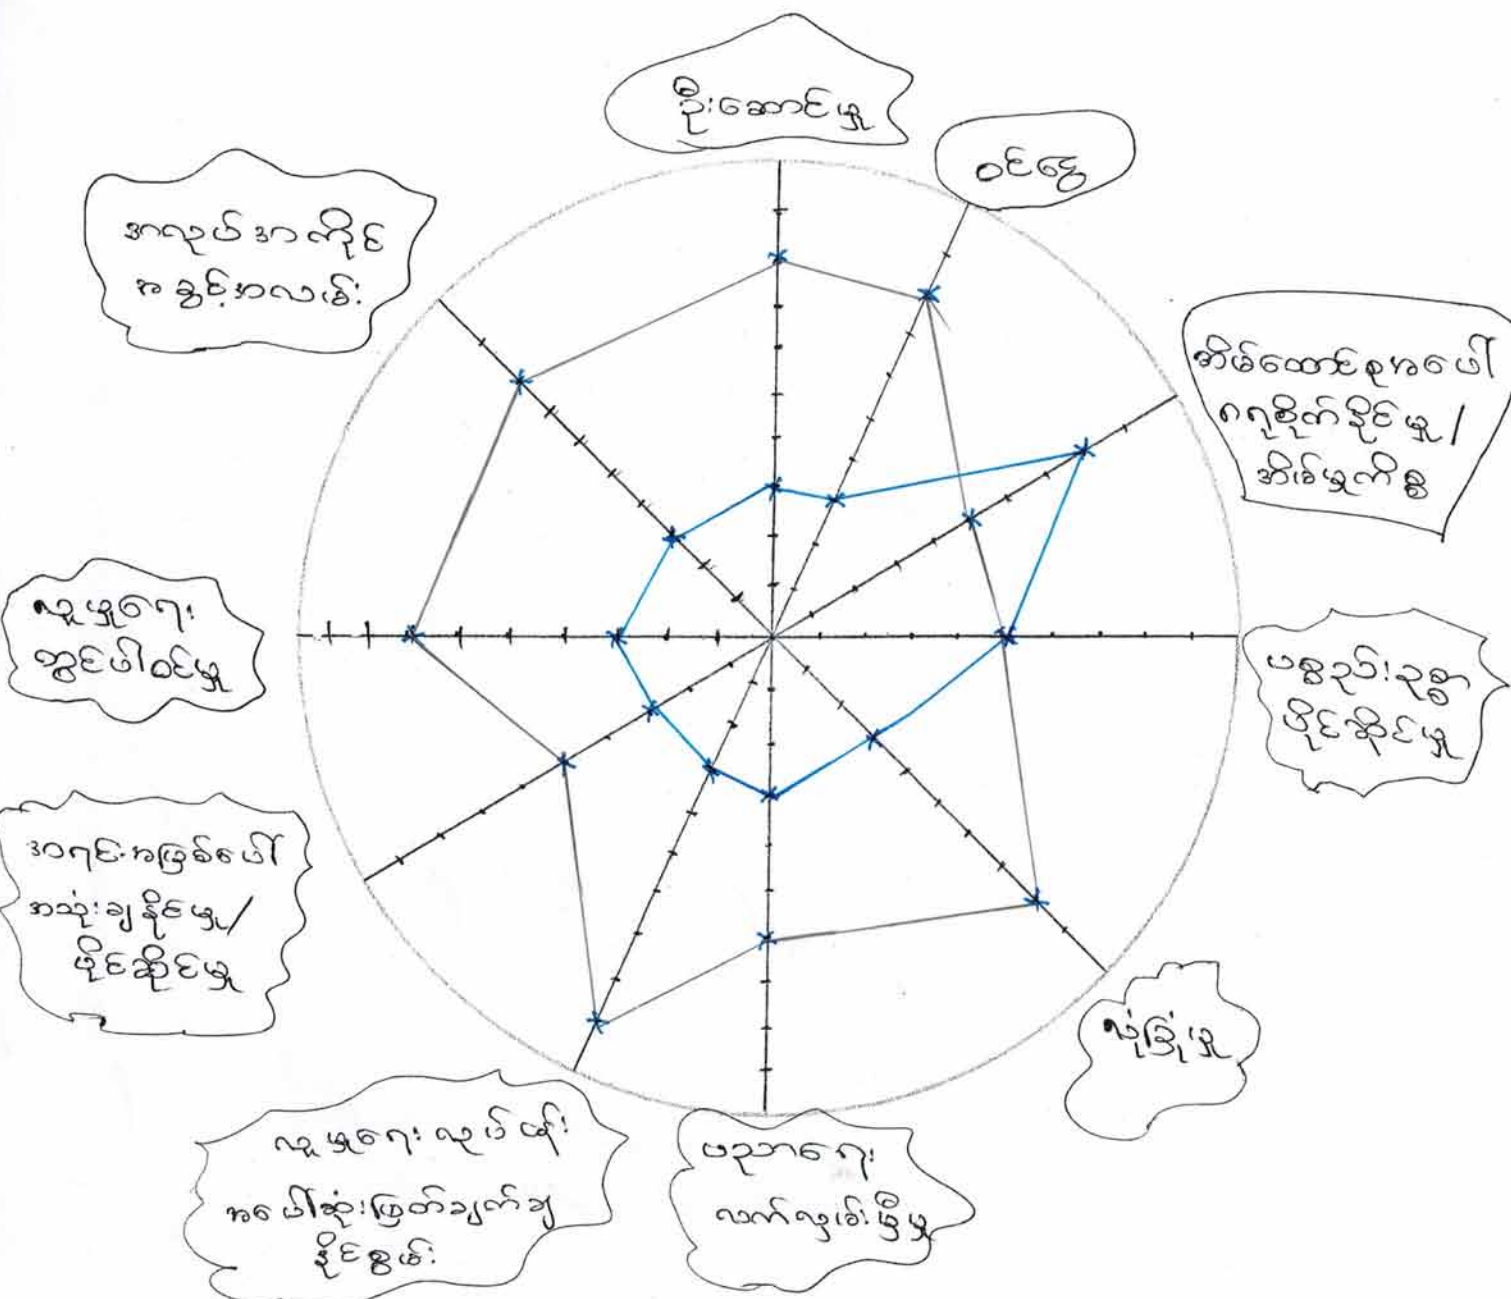 ဦးဆောင်မှု
ဝင်ငွေ
အိမ်ထောင်စုအပေါ်
ဂရုစိုက်နိုင်မှု/
အိမ်မှုကိစ္စ
ပစ္စည်းဥစ္စာ
ပိုင်ဆိုင်မှု
လုံခြုံမှု
ပညာရေး
လက်လှမ်းမှီမှု
လူမှုရေး လုပ်ငန်း
အပေါ်ဆုံးဖြတ်ချက်ချ
နိုင်စွမ်း
အရင်းအမြစ်ပေါ်
အသုံးချနိုင်မှု/
ပိုင်ဆိုင်မှု
လူမှုရေး
တွင်ပါဝင်မှု
အလုပ်အကိုင်
အခွင့်အလမ်း